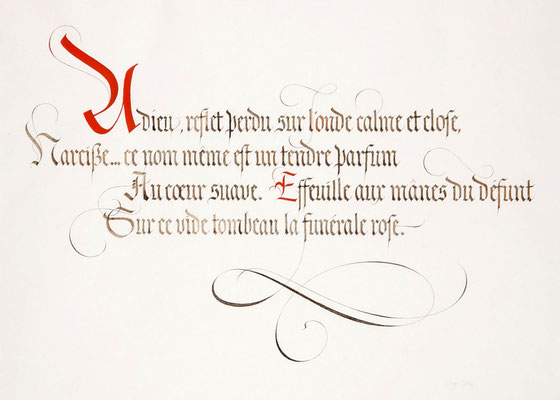 Adieu, reflet perdu sur l'onde calme et cloſe,
Narciße... ce nom même est un tendre parfum
Au cœur suave. Effeuille aux mânes du défunt
Sur ce vide tombeau la funérale roſe.